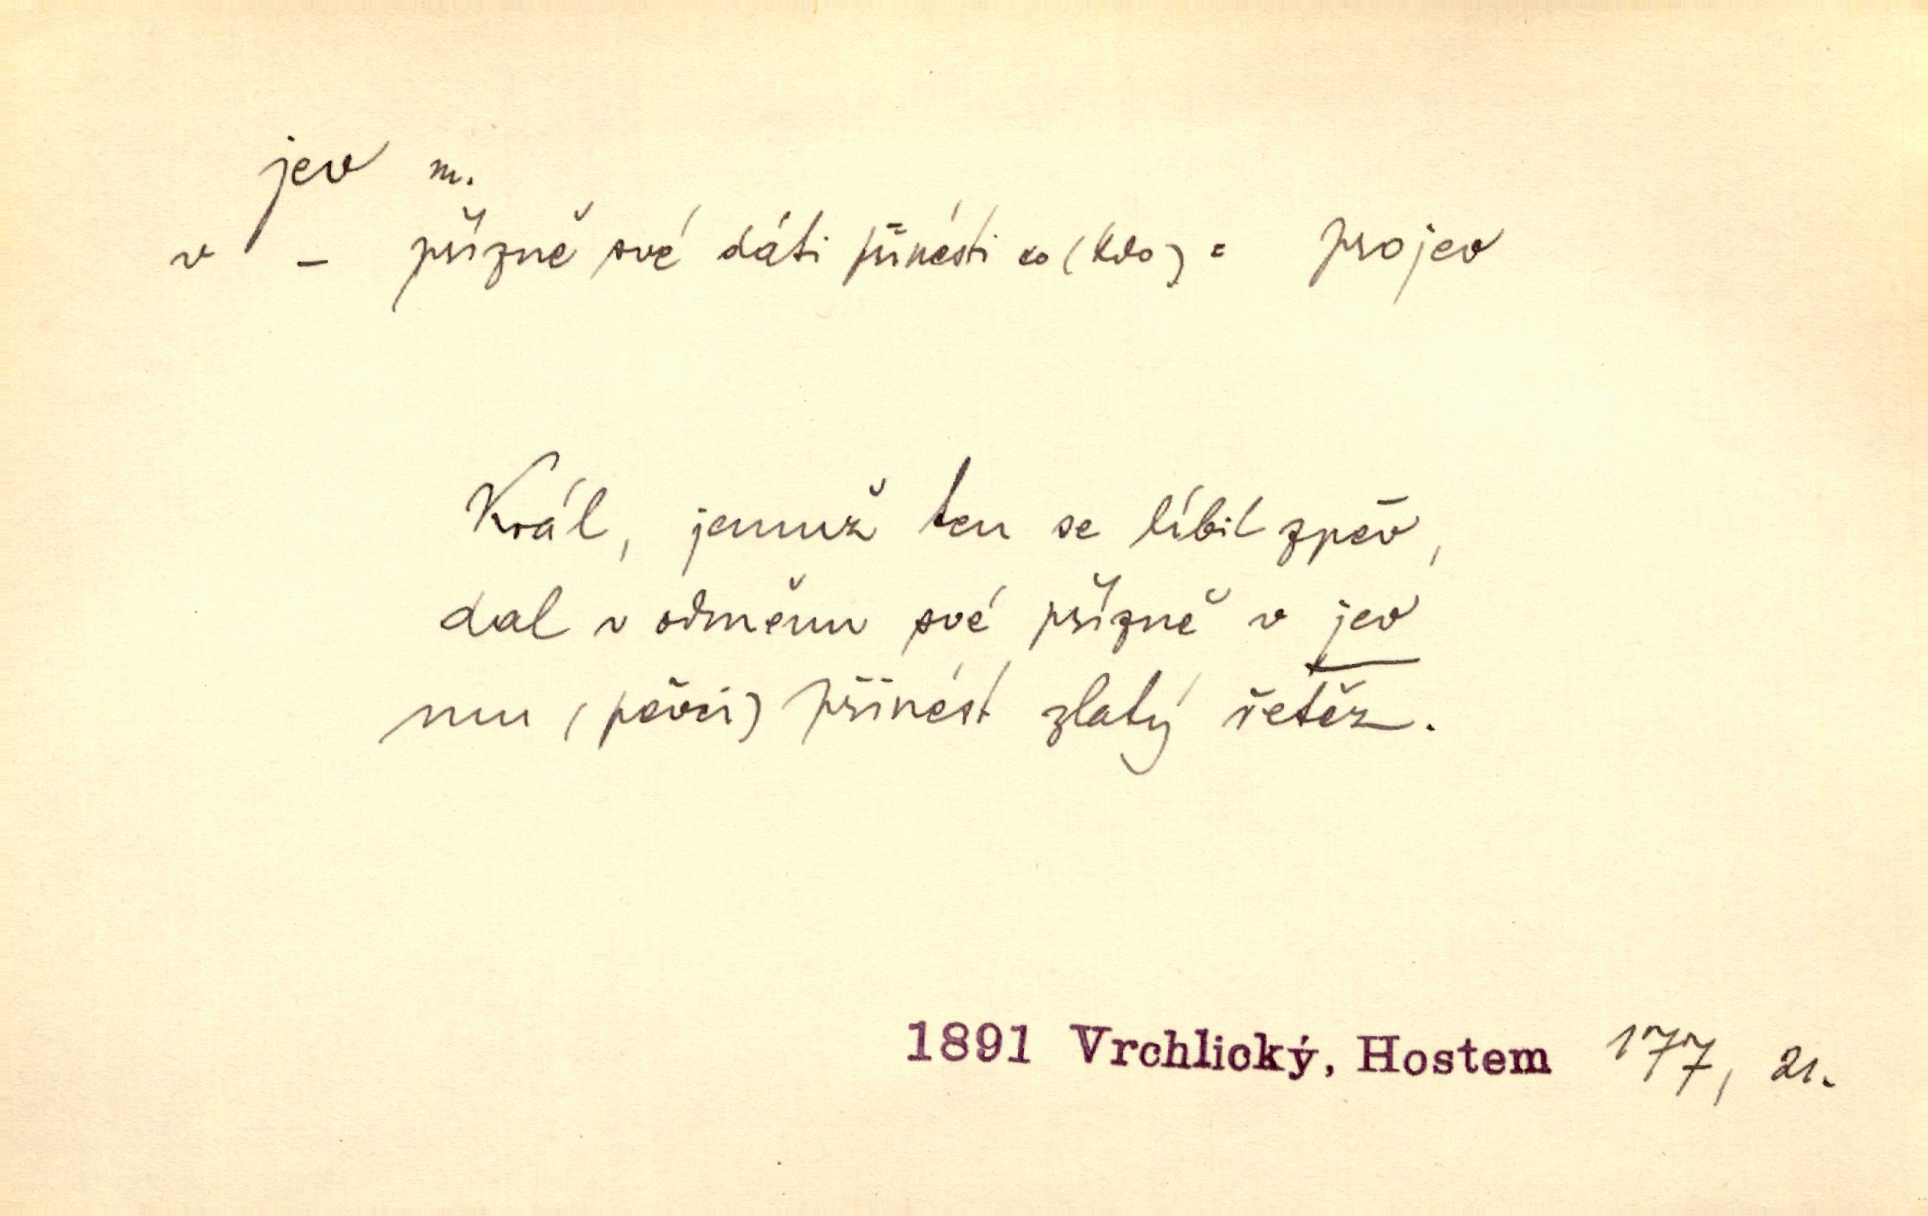 jev m.
v – přízně své dáti přinésti co (kdo) = projev
Král, jemuž ten se líbil zpěv,
dal v odměnu své přízně v jev
mu (pěvci) přinést zlatý řetěz.
1891 Vrchlický, Hostem 177, 21.